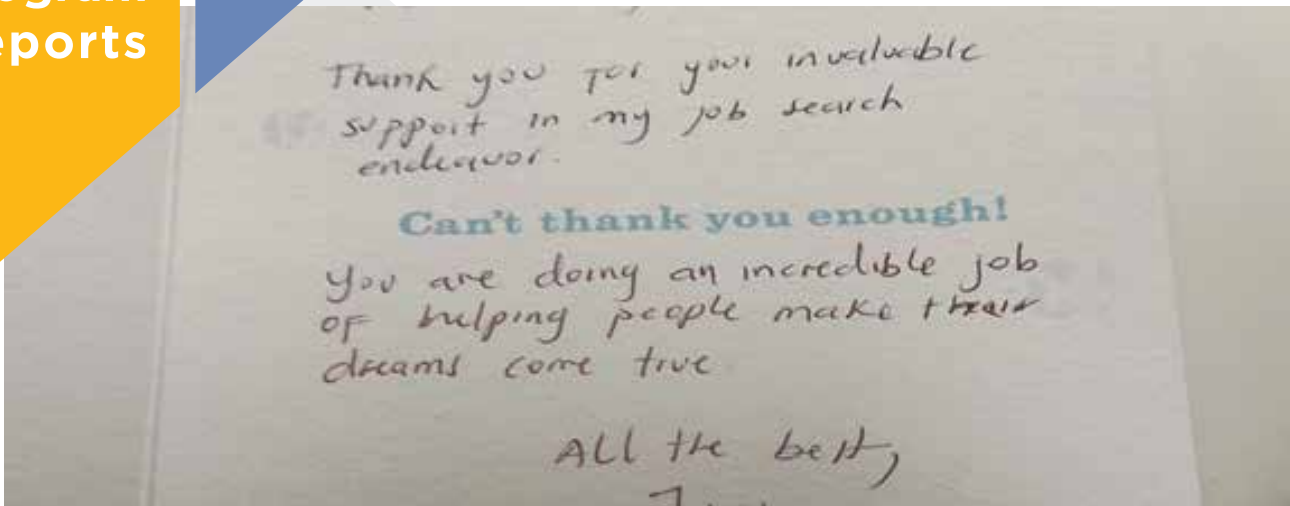 Thank you for your invaluable
support in my job search
endeavor.
Can't thank you enough!
You are doing an incredible job
of helping people make their
dreams come true
All the best,